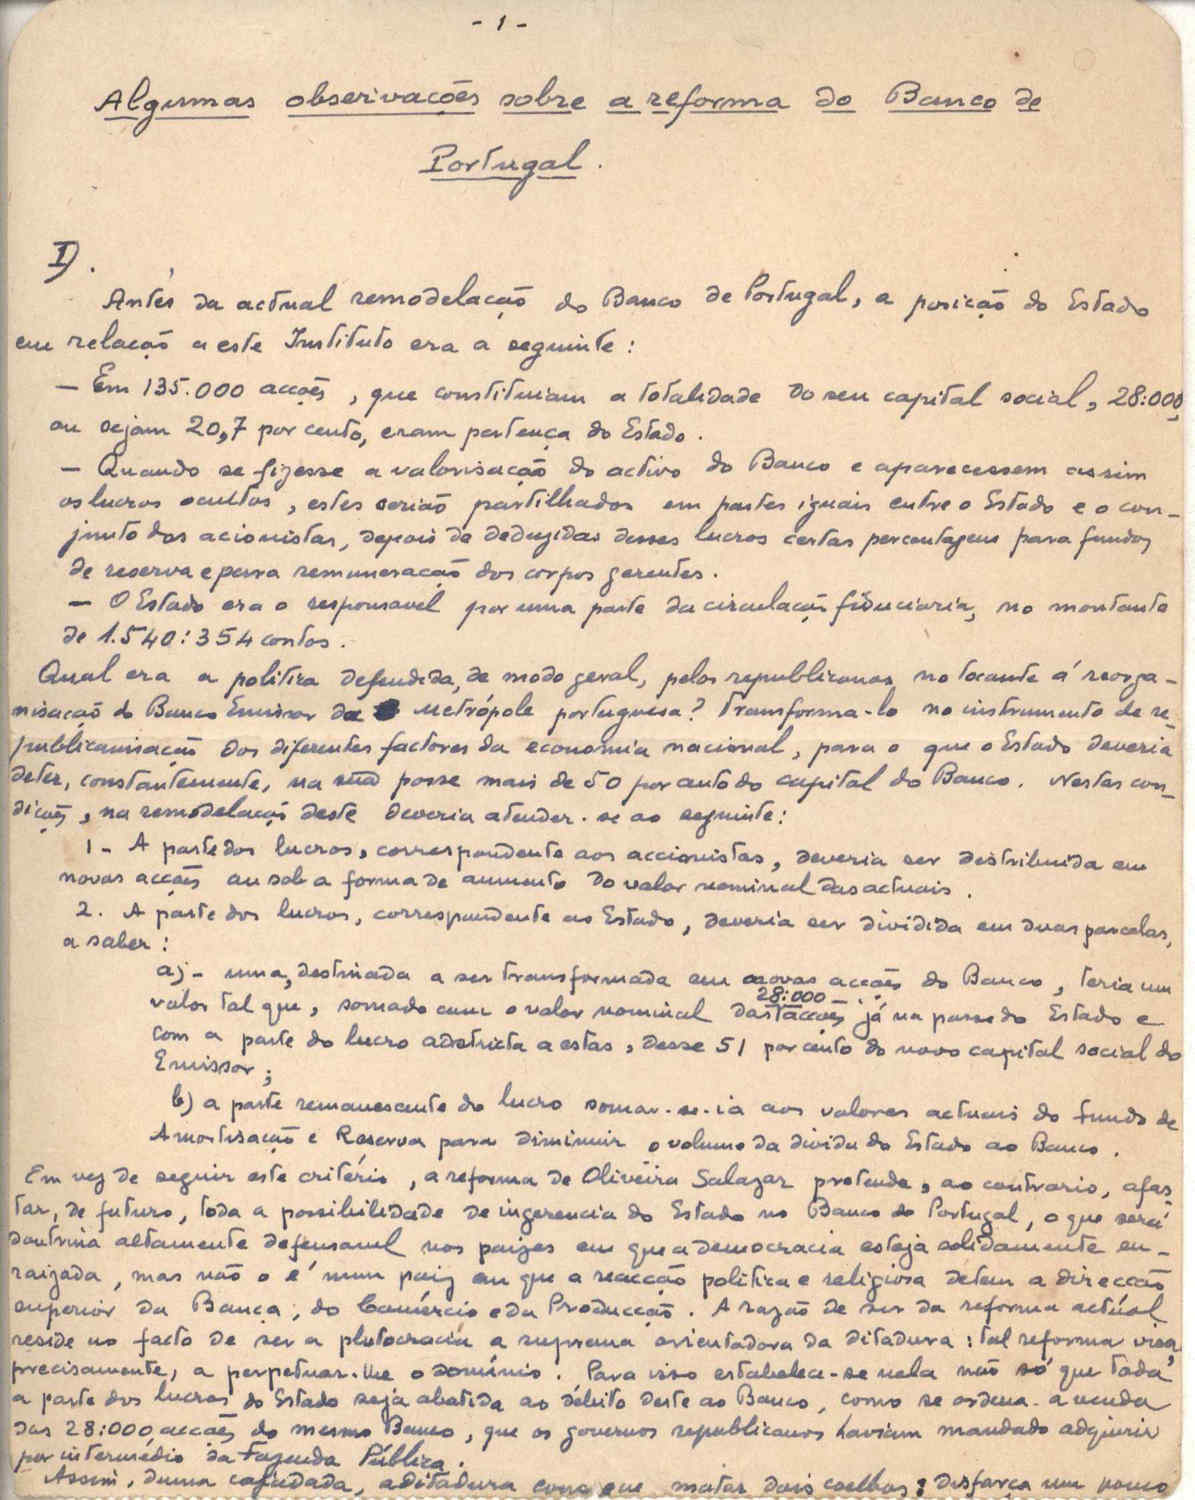 - 1 -
Algumas observações sobre a reforma do Banco de
Portugal.
I).
Antes da actual remodelação do Banco de Portugal, a posição do Estado
em relação a este Instituto era a seguinte:
- Em 135.000 acções, que constituiam a totalidade do seu capital social, 28:000,
ou sejam 20,7 por cento, eram pertença do Estado.
- Quando se fizesse a valorisação do activo do Banco e aparecessem assim
os lucros ocultos, estes serião partilhados em partes iguais entre o Estado e o con-
junto dos acionistas, depois de deduzidas desses lucros certas percentagens para fundos
de reserva e para remuneração dos corpos gerentes.
- O Estado era o responsavel por uma parte da circulação fiduciaria, no montante
de 1.540:354 contos.
Qual era a politica defendida, de modo geral, pelos republicanos no tocante á reorga-
nisação do Banco Emissor da Metrópole portuguesa? Transforma-lo no instrumento de re-
publicanisação dos diferentes factores da economia nacional, para o que o Estado deveria
deter, constantemente, na sua posse mais de 50 por cento do capital do Banco. Nestas con-
dições, na remodelação deste deveria atender-se ao seguinte:
1 - A parte dos lucros, correspondente aos accionistas, deveria ser destribuida em
novas acções ou sob a forma de aumento do valor nominal das actuais.
2. A parte dos lucros, correspondente ao Estado, deveria ser dividida em duas parcelas,
a saber:
a) - uma, destinada a ser transformada em novas acções do Banco, teria um
28:000
valor tal que, somado com o valor nominal das acções já na posse do Estado e
com a parte do lucro adstricta a estas, desse 51 por cento do novo capital social do
Emissor;
b) a parte remanescente do lucro somar-se-ia aos valores actuais do fundo de
Amortisação e Reserva para diminuir o volume da divida do Estado ao Banco.
Em vez de seguir este critério, a reforma de Oliveira Salazar pretende, ao contrario, afas
tar, de futuro, toda a possibilidade de ingerencia do Estado no Banco de Portugal, o que será
doutrina altamente defensavel nos paizes em que a democracia esteja solidamente en-
raizada, mas não o é num paiz em que a reacção politica e religiosa detem a direcção
superior da Banca, do Comércio e da Producção. A razão de ser da reforma actual
reside no facto de ser a plutocracia a suprema orientadora da ditadura: tal reforma visa,
precisamente, a perpetuar-lhe o dominio. Para isso estabelece-se nela não só que toda
a parte dos lucros do Estado seja abatida ao débito deste ao Banco, como se ordena a venda
das 28:000 acções do mesmo Banco, que os governos republicanos haviam mandado adquirir
por intermédio da Fazenda Pública.
Assim, duma cajadada, a ditadura que matar dois coelhos: disfarça um pouco